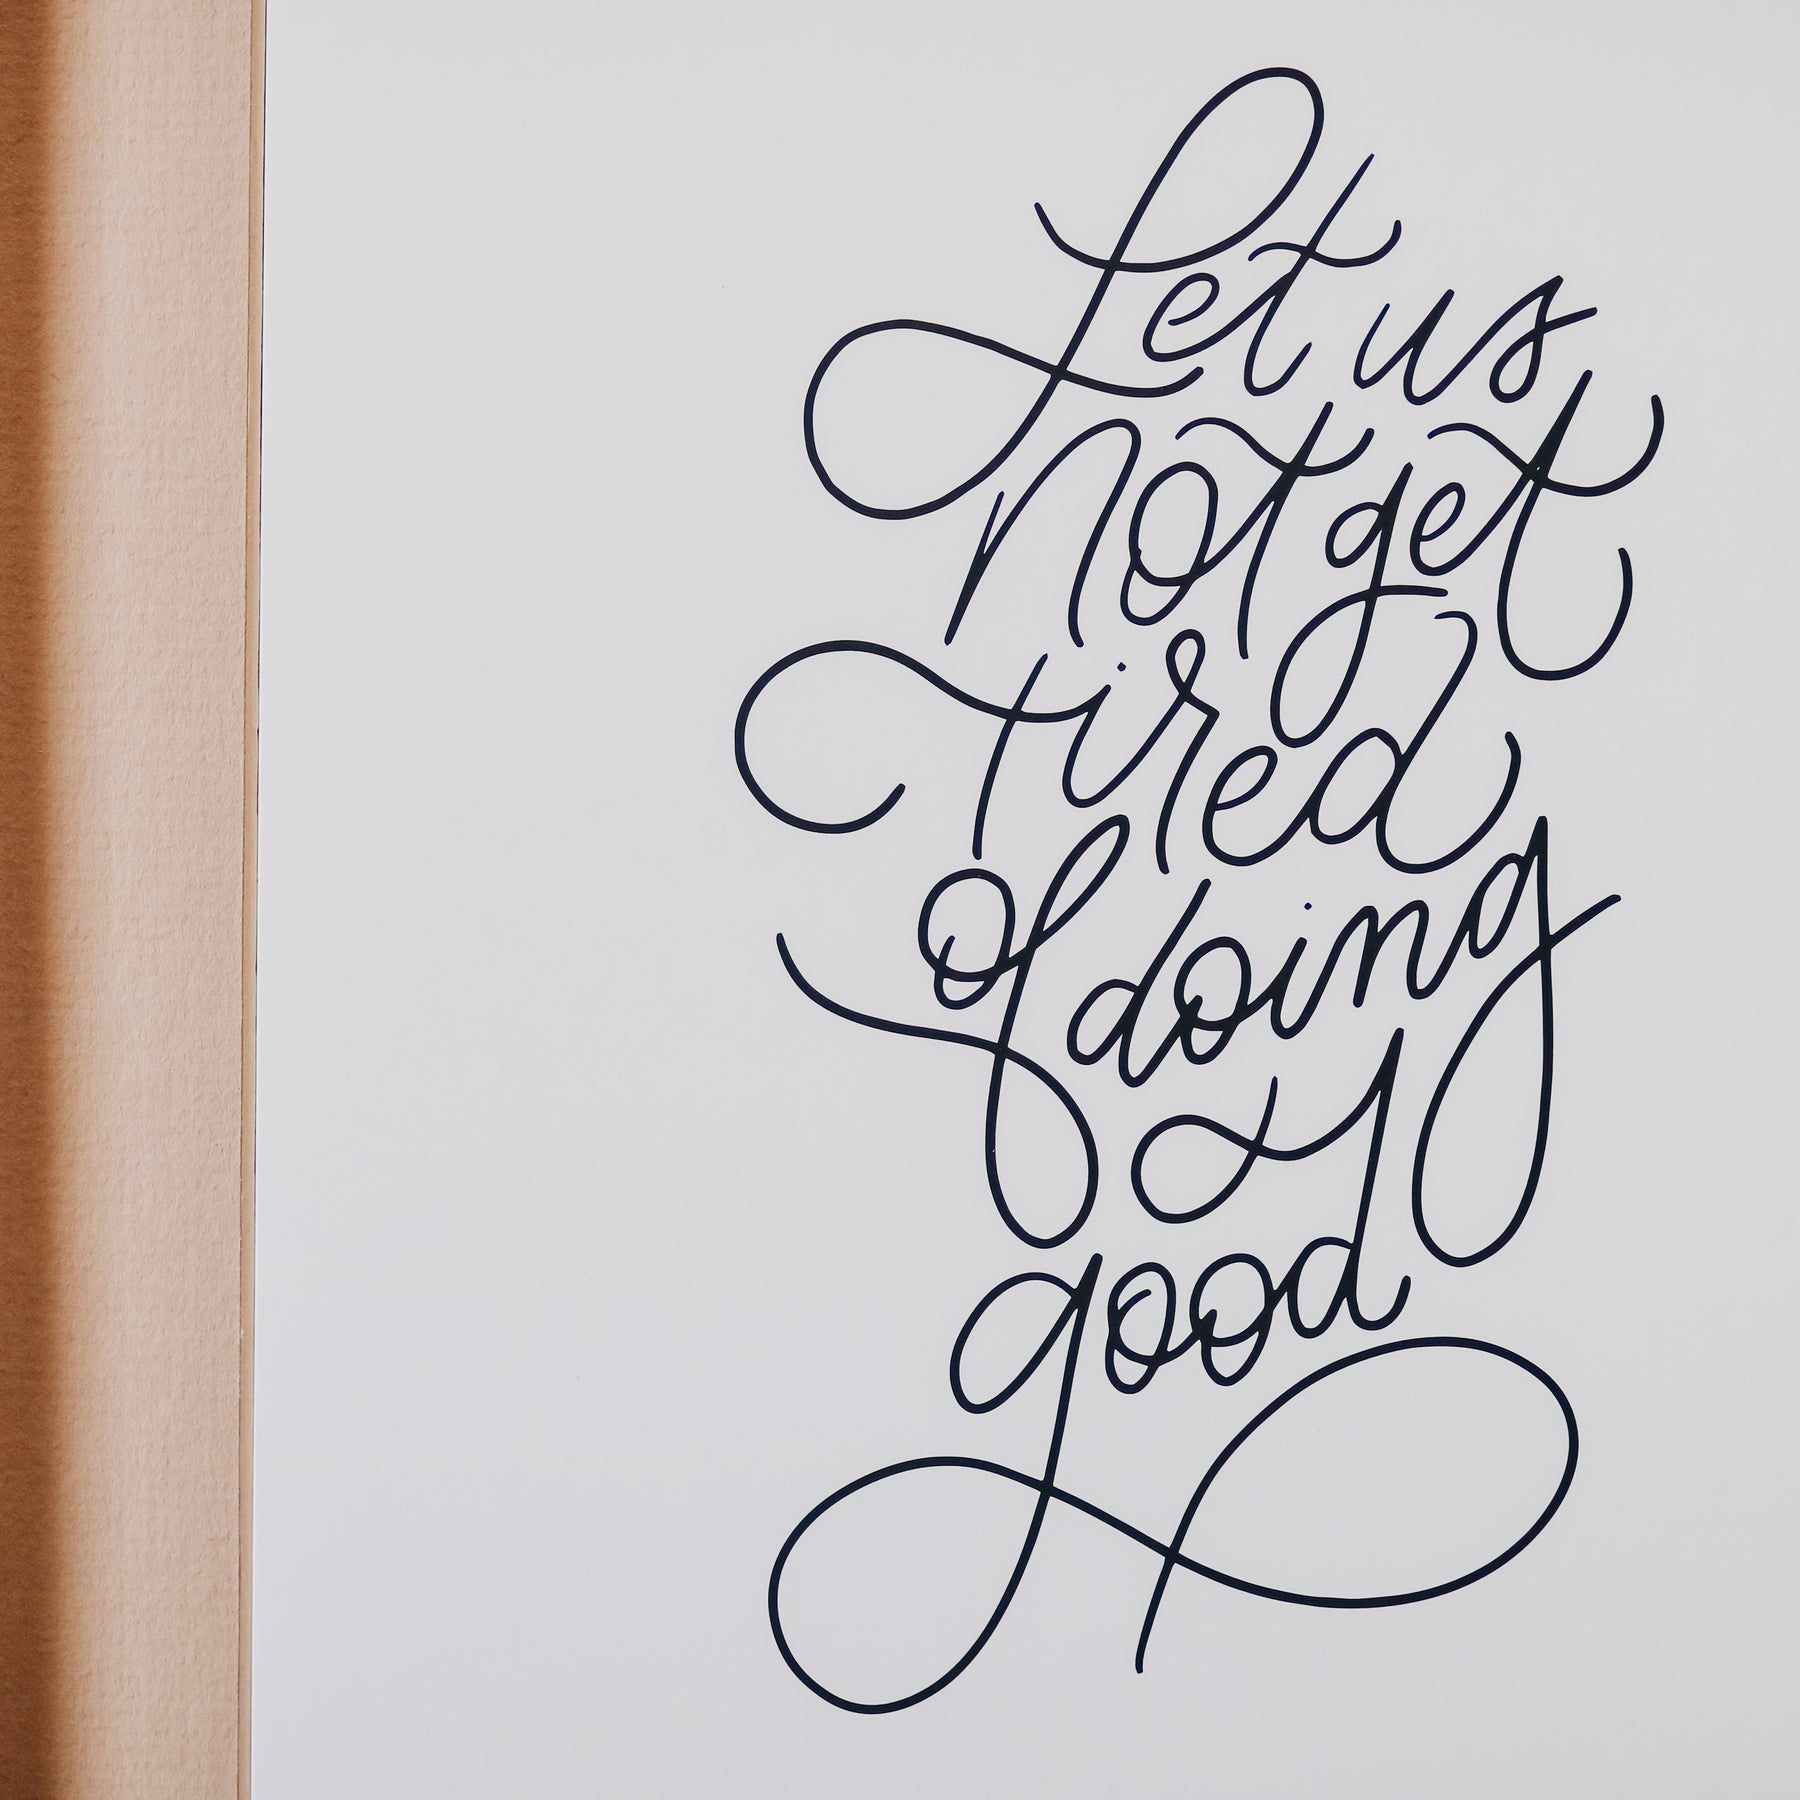 Let us
not get
tired
of doing
good